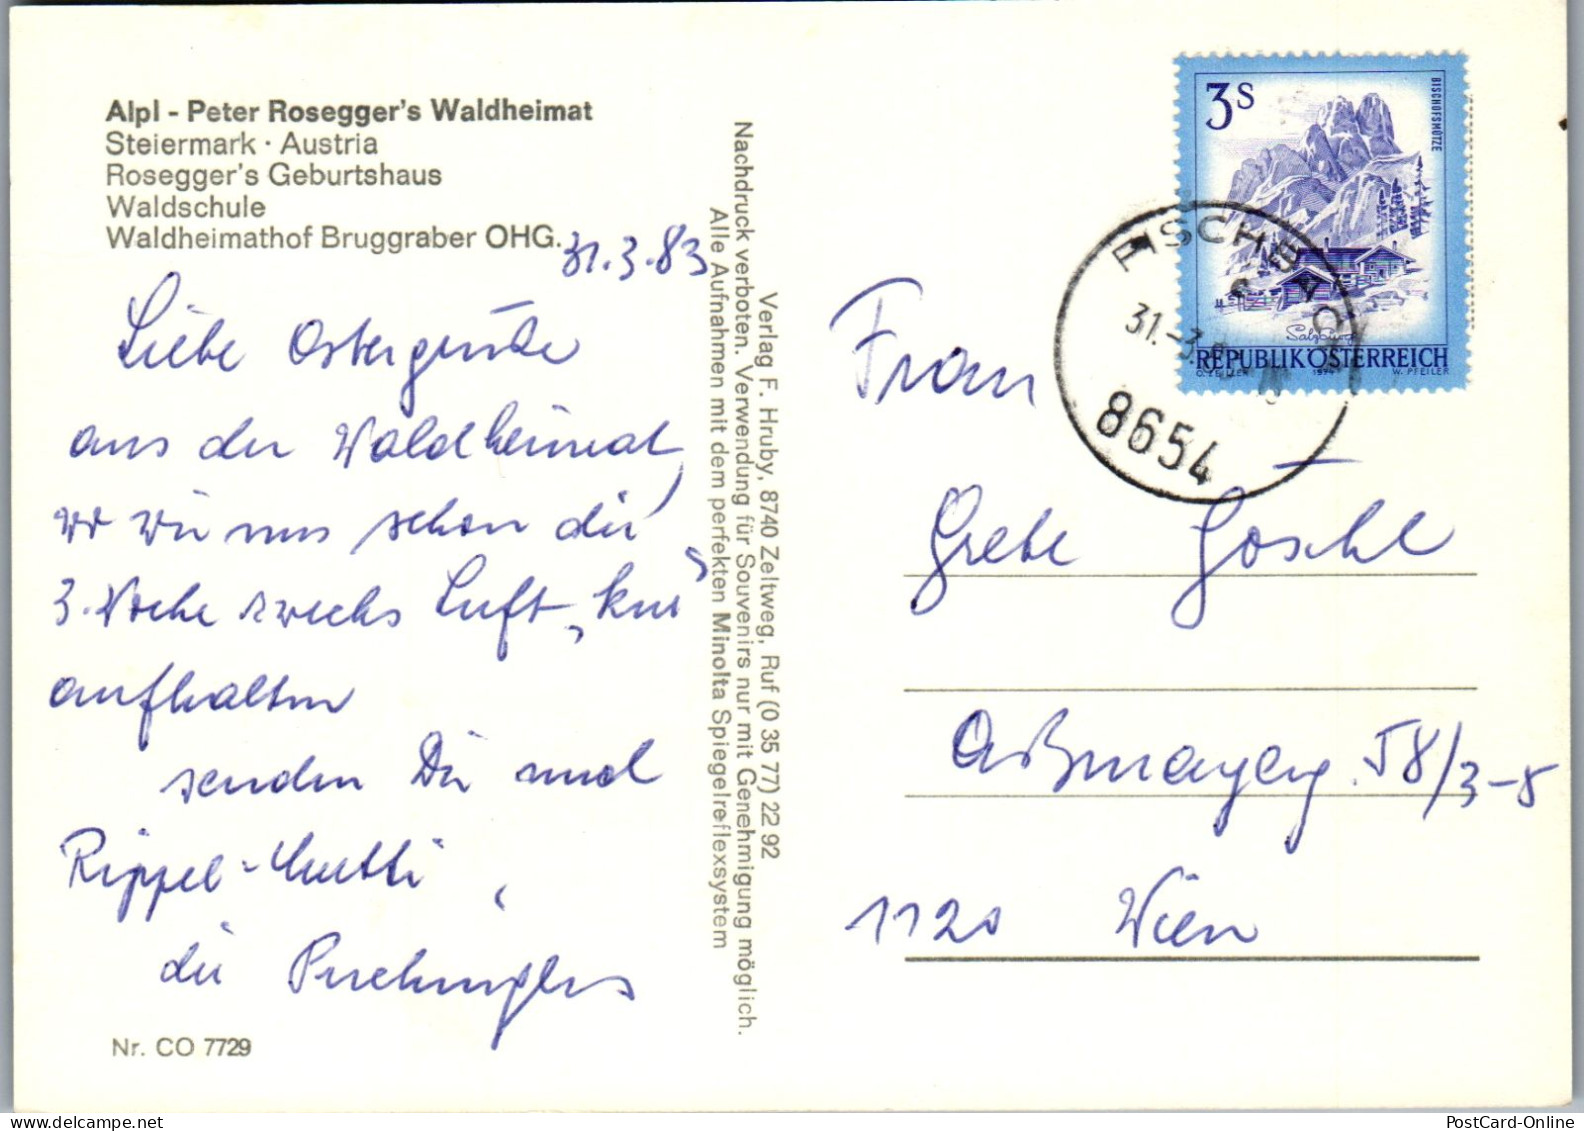 Alpl - Peter Rosegger's Waldheimat
Steiermark · Austria
Rosegger's Geburtshaus
Waldschule
Waldheimathof Bruggraber OHG.
31.3.83
Liebe Ostergrüße
aus der Waldheimat,
wo wir uns schon die
3. Woche zwecks Luft „kur"
aufhalten
senden Dir und
Rippel-Mutti,
die
Nr. CO 7729
Verlag F. Hruby, 8740 Zeltweg, Ruf (0 35 77) 22 92
Nachdruck verboten. Verwendung für Souvenirs nur mit Genehmigung möglich.
Alle Aufnahmen mit dem perfekten Minolta Spiegelreflexsystem
3S
BISCHOFSMÜTZE
Salzburg
REPUBLIK ÖSTERREICH
1974 W. PFEILER
FISCHBACH
31.-3.8
8654
Frau
Grete Göschl
Aßmayerg. 58/3-8
1120 Wien
PostCard-Online